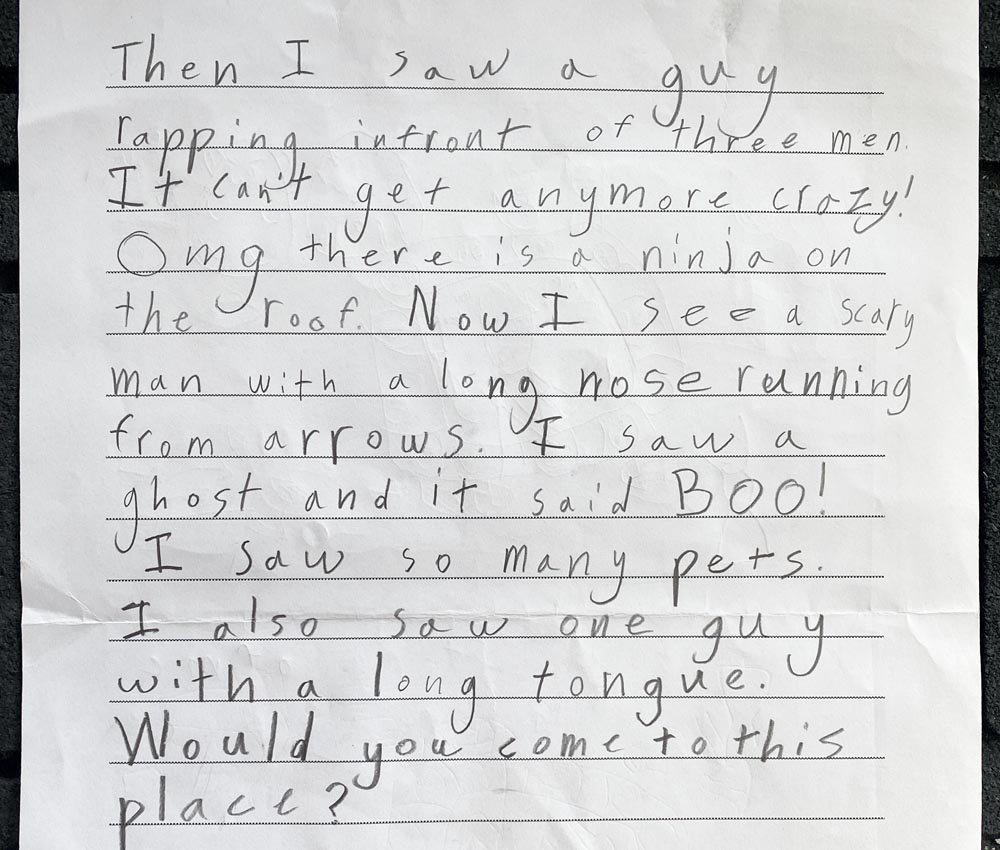 Then I saw a guy
rapping infront of three men.
It can't get anymore crazy!
Omg there is a ninja on
the roof. Now I see a scary
man with a long nose running
from arrows. I saw a
ghost and it said BOO!
I saw so many pets.
I also saw one guy
with a long tongue.
Would you come to this
place?